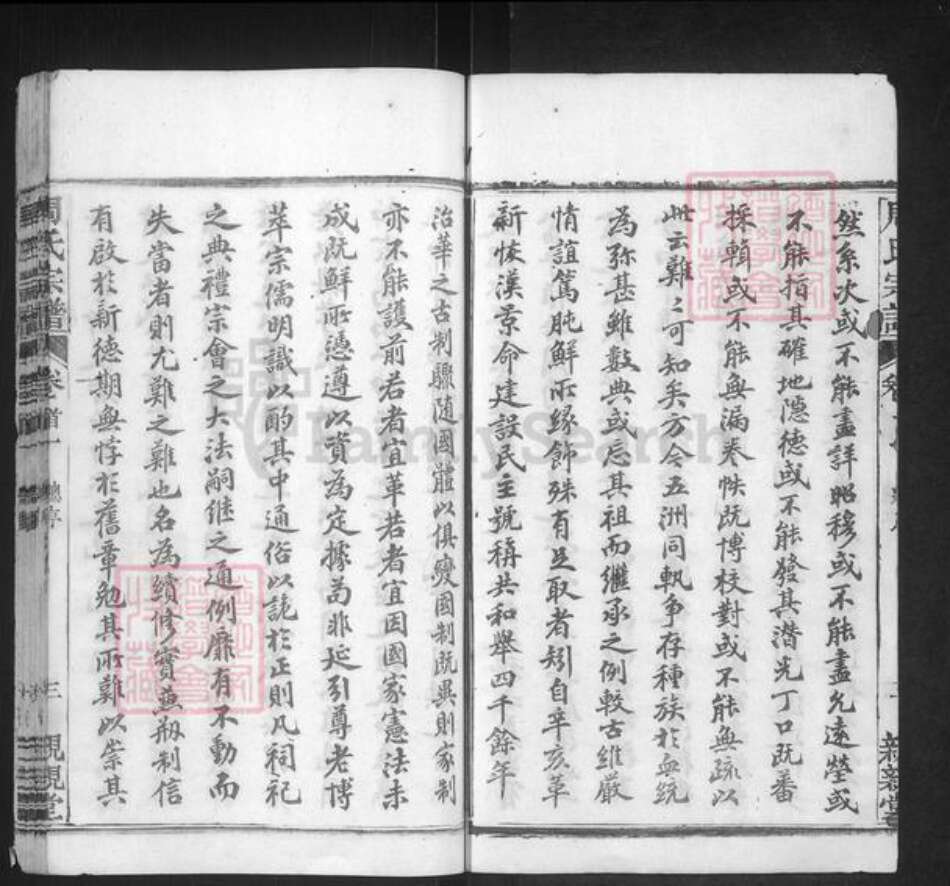 然系次或不能盡詳昭穆或不能盡允遠塋或
不能指其確地隱德或不能發其潛光丁口既番
採輯或不能無漏卷帙既博校對或不能無疏以
此云難之可知矣方今五洲同軌爭存種族於血統
為弥甚雖數典或忘其祖而繼承之例較古維嚴
情誼篤肫鮮所緣飾殊有足取者矧自辛亥革
新恢漢景命建設民主號稱共和舉四千餘年
治華之古制驟随國體以俱變國制既異則家制
亦不能護前若者宜革若者宜因國家憲法未
成既鮮所憑遵以資為定據苟非延引尊老博
萃宗儒明識以酌其中通俗以詭於正則凡祠祀
之典禮宗會之大法嗣継之通例靡有不動而
失當者則尤難之難也名為續修實無刱制信
有啟於新德期無悖於舊章勉其所難以崇其
周氏宗譜 卷首一 總序 三 親親堂
周氏宗譜